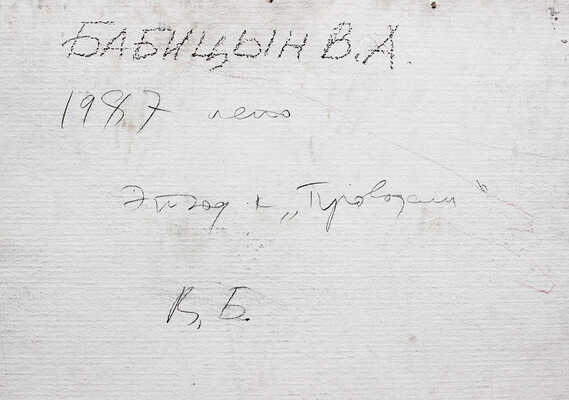 БАБИЦЫН В.А.
1987 лето
Этюд к „Проводам“
В. Б.